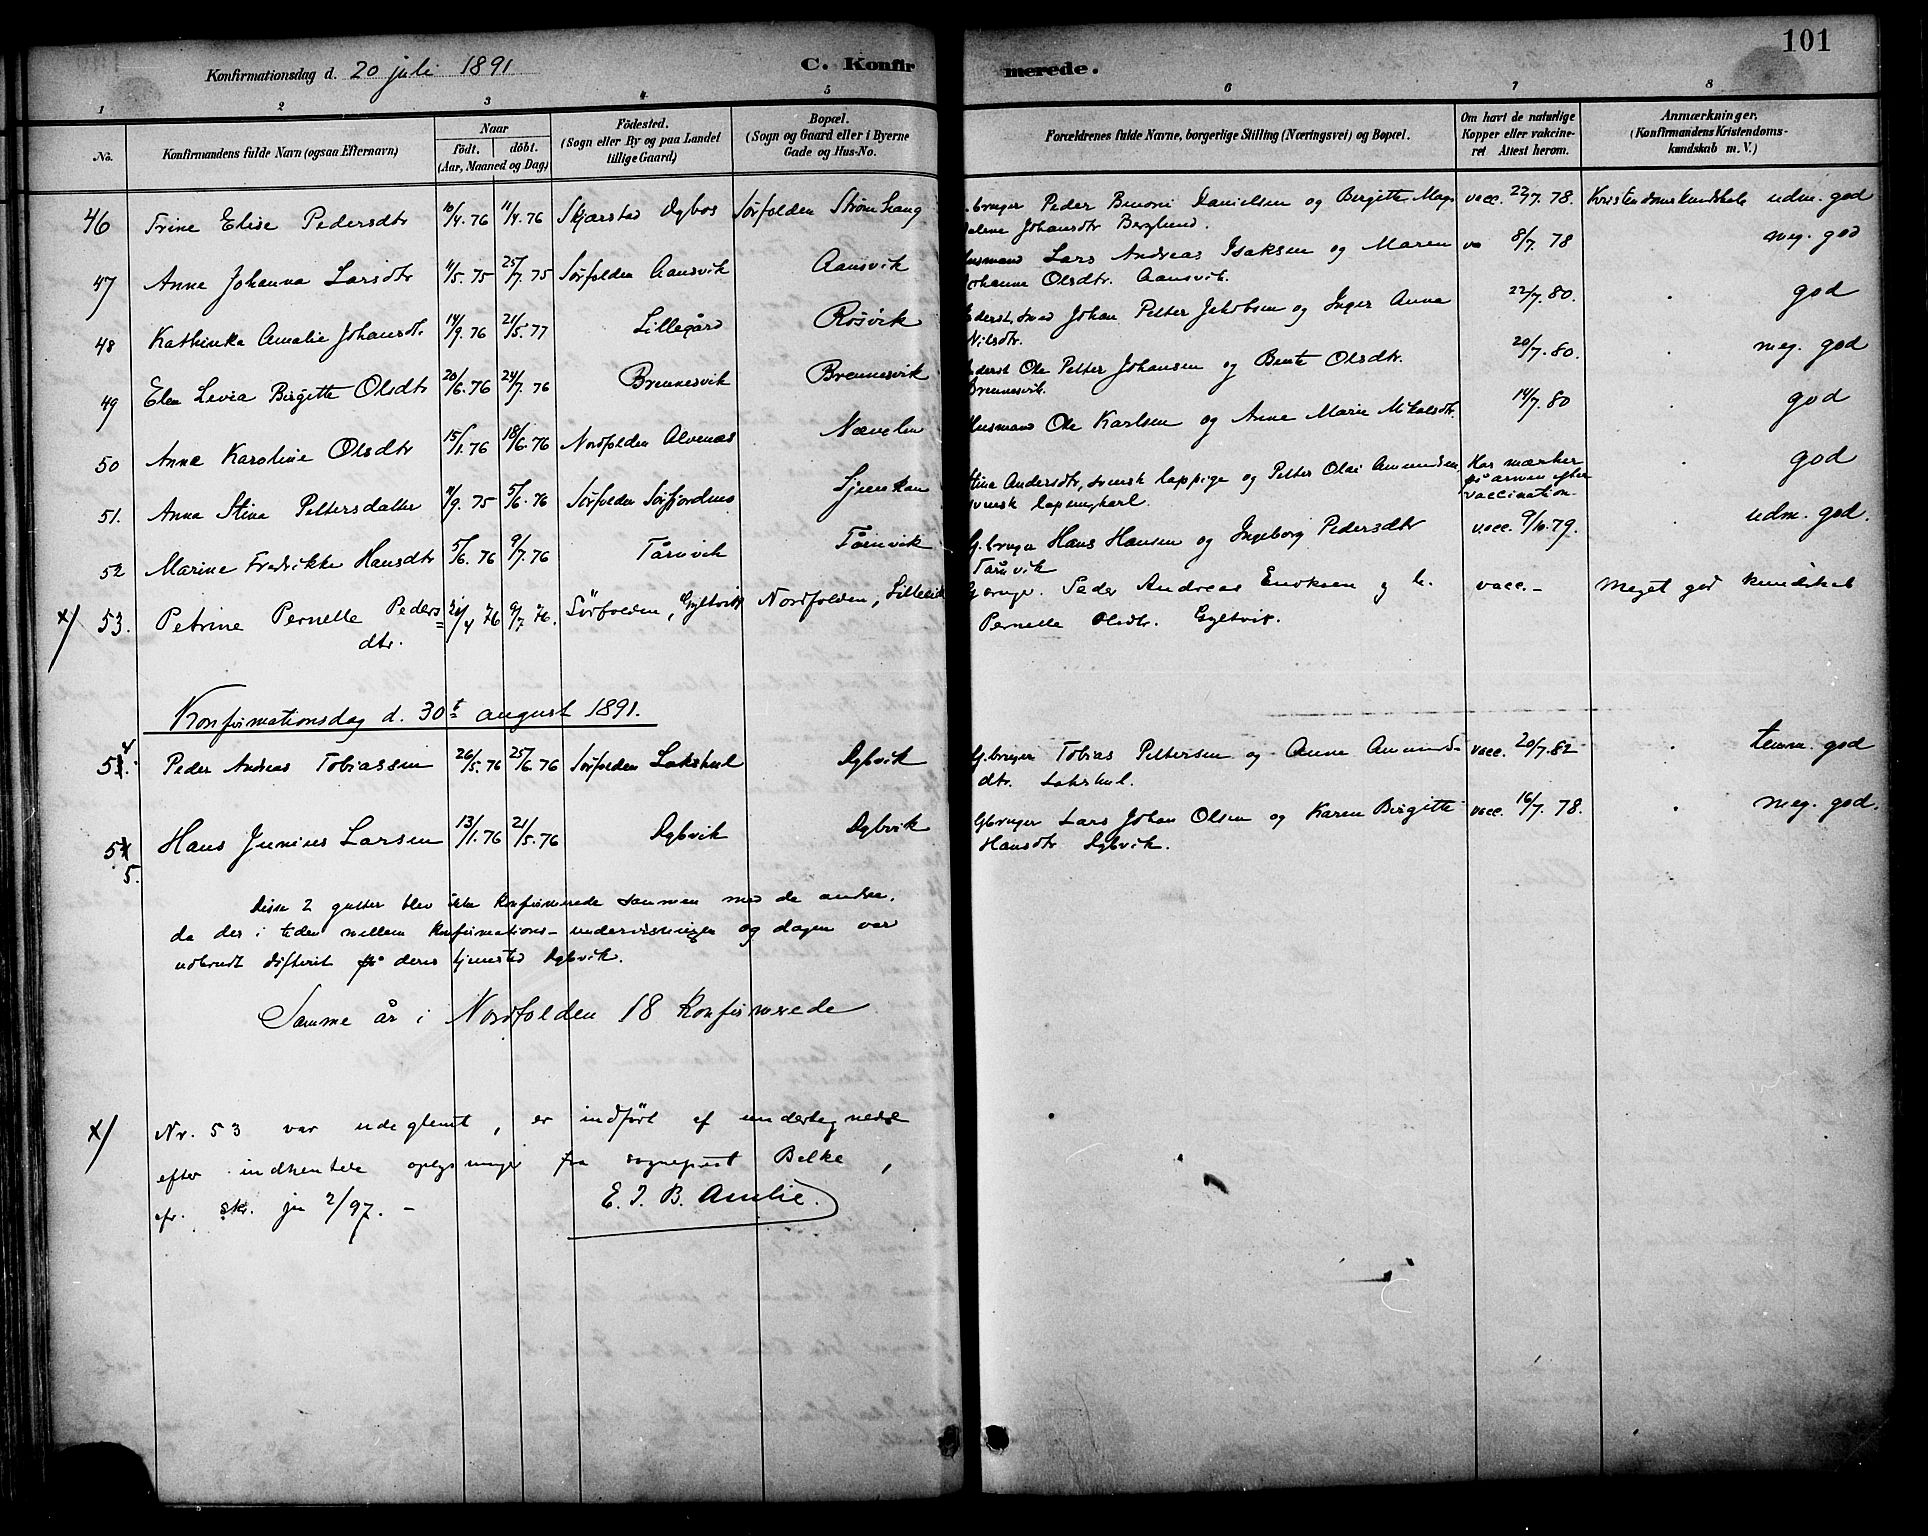 101
Konfirmationsdag d. 20 juli 1891
C. Konfirmerede.
1 2 3 4 5 6 7 8
No.
Konfirmandens fulde Navn (ogsaa Efternavn)
Naar
Födt. döbt.
(Aar, Maaned og Dag)
Födested.
(Sogn eller By og paa Landet
tillige Gaard)
Bopæl.
(Sogn og Gaard eller i Byerne
Gade og Hus-No.
Forældrenes fulde Navne, borgerlige Stilling (Næringsvei) og Bopæl.
Om havt de naturlige
Kopper eller vakcine-
ret Attest herom.
Anmærkninger,
(Konfirmandens Kristendoms-
kundskab m. V.)
46 Trine Elise Pedersdtr 10/4.76 11/4.76 Skjærstad Dybos Sørfolden Strømhaug bruger Peder Benoni Danielsen og Birgitte Mag-
dalene Johansdtr Berglund. vacc. 22/7.78. Kristendomskundskab udm. god
47 Anne Johanna Larsdtr 4/5.75 25/7.75 Sørfolden Aansvik Aansvik Husmand Lars Andreas Isaksen og Maren
Johanne Olsdtr. Aansvik. va 8/7.78 meg. god
48 Kathinka Amalie Johansdt. 14/9.76 21/5.77 Lillegård Røsvik Johan Petter Jakobsen og Inger Anna
Nilsdtr. 22/7.80. god
49 Elen Levia Birgitte Olsdtr 20/6.76 24/7.76 Brennesvik Brennesvik Ole Petter Johansen og Bente Olsdtr.
Brennesvik. 20/7.80. meg. god
50 Anne Karoline Olsdtr 15/1.76 18/6.76 Nordfolden Alvenæs Nævelen Husmand Ole Karlsen og Anne Marie Mikalsdtr. 14/7.80 god
51. Anna Stina Pettersdatter 4/9.75 5/6.76 Sørfolden Sørfjordmo Stina Andersdtr, svensk lappige og Petter Olai Amundsen,
svensk Har mærker
på armen efter
vaccination. god
52 Marine Fredrikke Hansdtr 5/6.76 9/7.76 Tårnvik Tårnvik G.bruger Hans Hansen og Ingeborg Pedersdtr
Tårnvik vacc. 9/10.79. udm. god.
x/ 53. Petrine Pernelle Peders=
dtr. 21/4 76 9/7 76. Sörfolden, Gyltvik Nordfolden, Peder Andreas Enoksen og h.
Pernelle Olsdtr. Gyltvik. vacc.- Meget god kundskab
Konfirmationsdag d. 30t august 1891.
54. Peder Andreas Tobiassen 26/5.76 25/6.76 Sørfolden Lakshul Dybvik G.bruger Tobias Pettersen og Anne Amunds-
dtr. Lakshul. vacc. 20/7.82 temm. god
55. Hans Junius Larsen 13/1.76 21/5.76 Dybvik Dybvik Gbruger Lars Johan Olsen og Karen Birgitte
Hansdtr Dybvik. vacc. 16/7.78. meg. god.
Disse 2 gutter blev ikke konfirmerede sammen med de andre,
da der i tiden mellem konfirmations-undervisningen og dagen var
udbrudt difterit på deres tjenested Dybvik.
Samme år i Nordfolden 18 konfirmerede
x/ Nr. 53 var udeglemt, er indført af undertegnede
efter indhentede oplysninger fra sogneprest Balke,
cfr. skr. jn 2/97. -
E. I. B. Amlie.